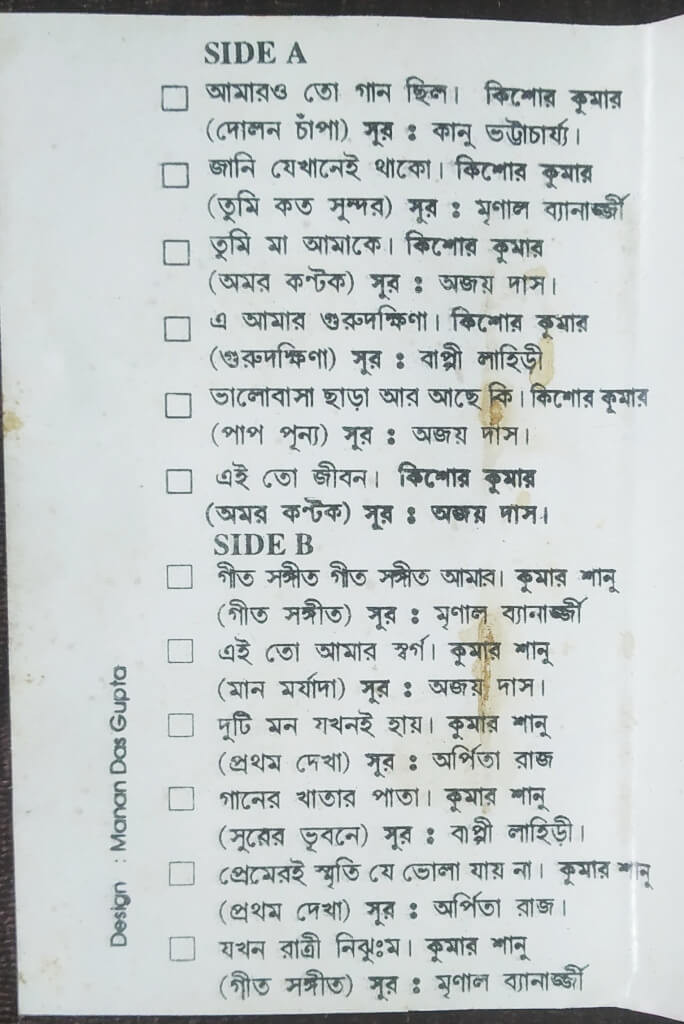 SIDE A
আমারও তো গান ছিল। কিশোর কুমার
(দোলন চাঁপা) সুর : কানু ভট্টাচার্য্য।
জানি যেখানেই থাকো। কিশোর কুমার
(তুমি কত সুন্দর) সুর : মৃণাল ব্যানার্জ্জী
তুমি মা আমাকে। কিশোর কুমার
(অমর কণ্টক) সুর : অজয় দাস।
এ আমার গুরুদক্ষিণা। কিশোর কুমার
(গুরুদক্ষিণা) সুর : বাপ্পী লাহিড়ী
ভালোবাসা ছাড়া আর আছে কি। কিশোর কুমার
(পাপ পূন্য) সুর : অজয় দাস।
এই তো জীবন। কিশোর কুমার
(অমর কণ্টক) সুর : অজয় দাস।
SIDE B
গীত সঙ্গীত গীত সঙ্গীত আমার। কুমার শানু
(গীত সঙ্গীত) সুর : মৃণাল ব্যানার্জ্জী
এই তো আমার স্বর্গ। কুমার শানু
(মান মর্যাদা) সুর : অজয় দাস।
দুটি মন যখনই হায়। কুমার শানু
(প্রথম দেখা) সুর : অর্পিতা রাজ
গানের খাতার পাতা। কুমার শানু
(সুরের ভূবনে) সুর : বাপ্পী লাহিড়ী।
প্রেমেরই স্মৃতি যে ভোলা যায় না। কুমার শানু
(প্রথম দেখা) সুর : অর্পিতা রাজ।
যখন রাত্রী নিঝুঃম। কুমার শানু
(গীত সঙ্গীত) সুর : মৃণাল ব্যানার্জ্জী
Design : Manan Das Gupta